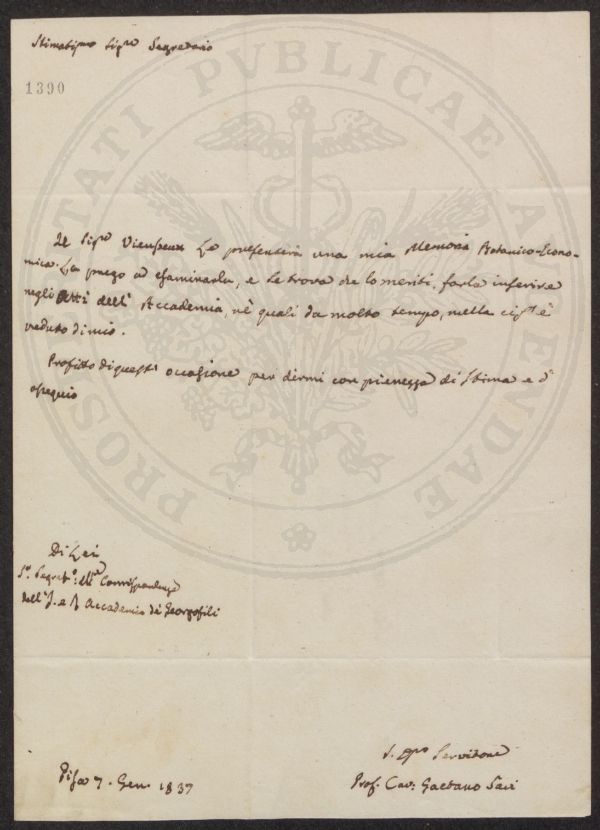 Stimatissmo Sigre Segretario
1390
PROSPERITATI PVBLICAE AVGENDAE
Il Sigre Vieusseux Le presenterà una mia Memoria Botanico-Econo-
mica. La prego ad esaminarla, e se trova che lo meriti, farla inserire
negli Atti dell' Accademia, ne' quali da molto tempo, nulla è
veduto di mio.
Profitto di quest' occasione per dirmi con pienezza di stima e d'
ossequio
Di Lei
Sr. Segreto. della Corrispondenza
dell' I. e R. Accademia de' Georgofili
Pisa 7. Gen. 1837
Servitore
Prof. Cav. Gaetano Savi